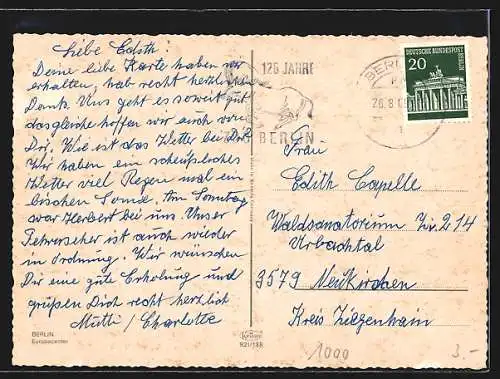 Liebe Edith!
Deine liebe Karte haben wir
erhalten, hab recht herzlichen
Dank. Uns geht es soweit gut
dasgleiche hoffen wir auch von
Dir. Wie ist das Wetter bei Dir
Wir haben ein scheußliches
Wetter viel Regen mal ein
bischen Sonne. Am Sonntag
war Herbert bei uns. Unser
Fehrnseher ist auch wieder
in Ordnung. Wir wünschen
Dir eine gute Erholung und
grüßen Dich recht herzlich
Mutti / Charlotte
BERLIN
Europacenter
125 JAHRE
ZOO BERLIN
BERLIN
26.8.69
1
DEUTSCHE BUNDESPOST
BERLIN
20
Frau
Edith Capelle
Waldsanatorium Zi. 214
Urbachtal
3579 Neukirchen
Kreis Ziegenhain
Krüger
921/138
1000
3.-